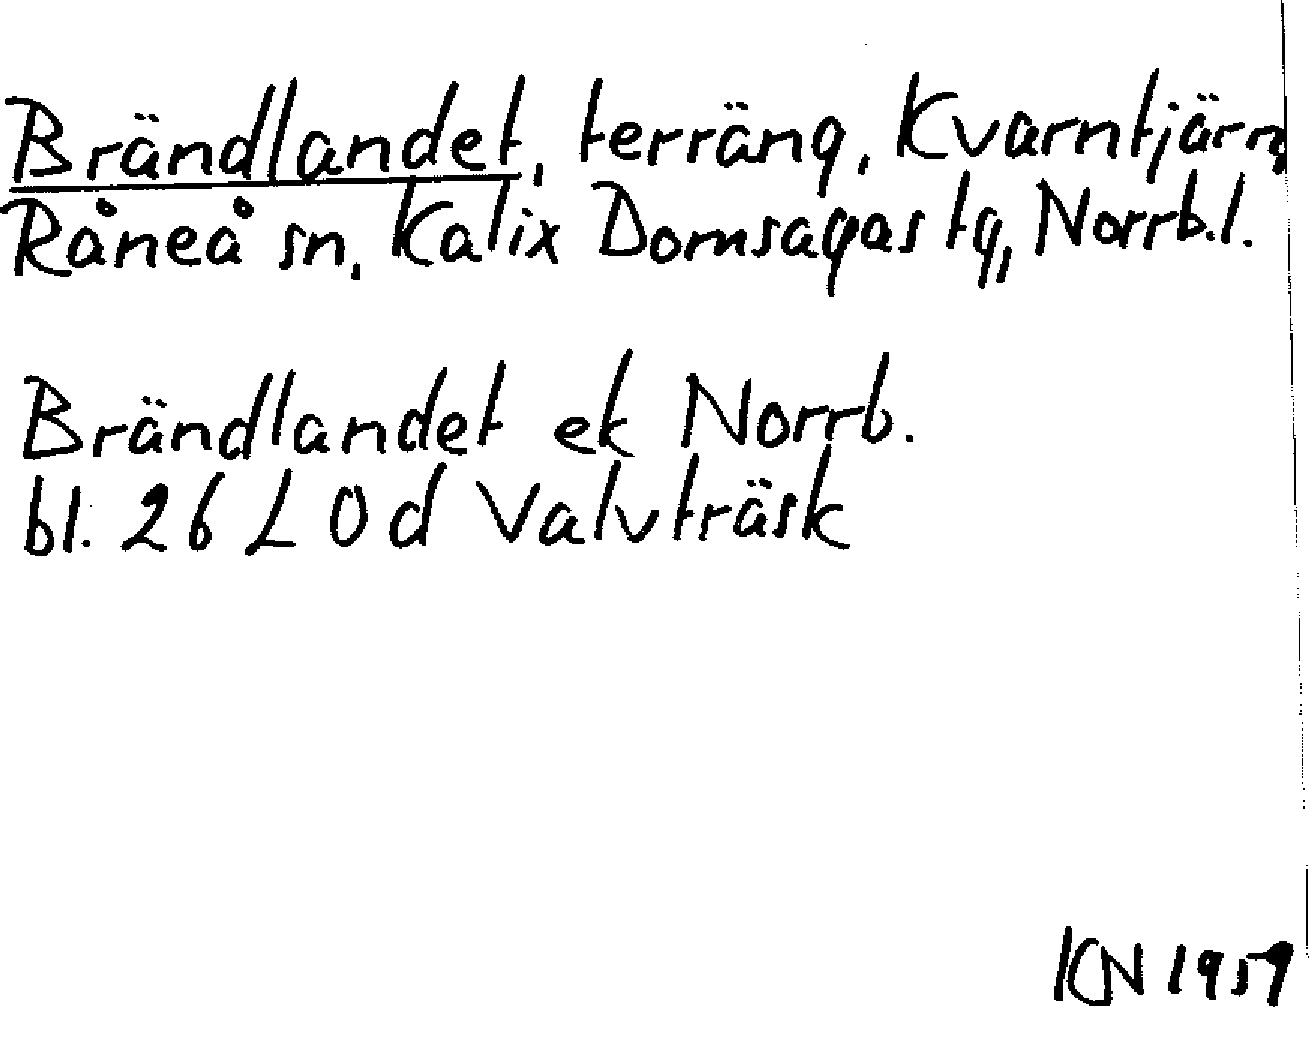 Brändlandet, terräng, Kvarntjärn,
Råneå sn, Kalix Domsagas tg, Norrb.l.
Brändlandet ek Norrb.
bl. 26 L 0 d Valvträsk
KN 1959